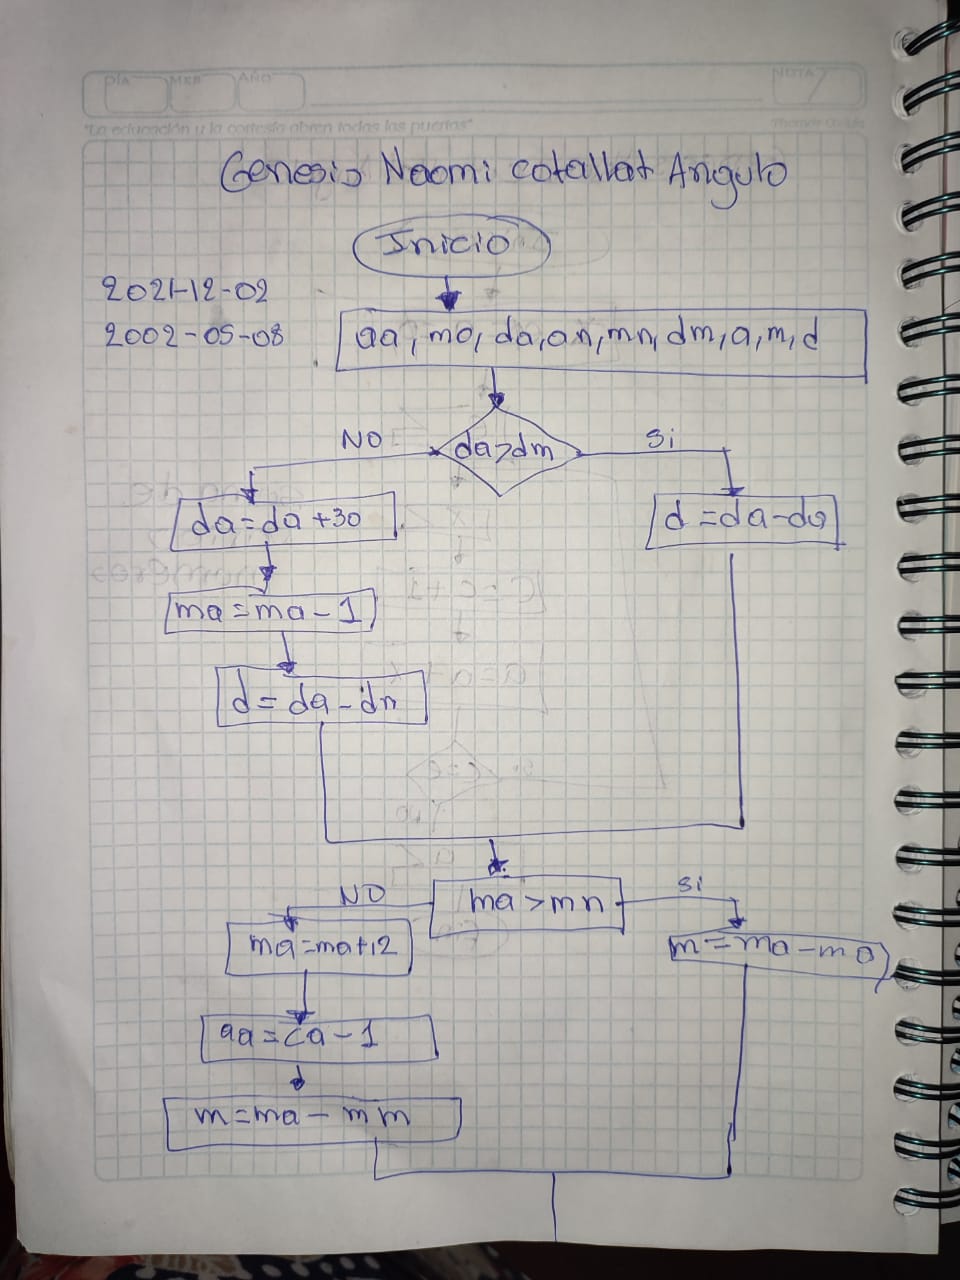 DÍA MES AÑO NOTA
"La educación y la cortesía abren todas las puertas"
Genesis Naomi cotallat Angulo
Inicio
2021-12-02
2002-05-08
aa, mo, da, an, mn, dm, a, m, d
NO da>dm Si
da=da+30 d=da-da
ma=ma-1
d=da-dn
NO ma>mn Si
ma=ma+12 m=ma-ma
aa=ca-1
m=ma-mm